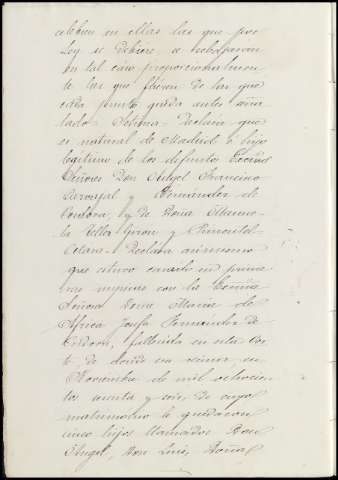 celebren en ellas las que por
Ley se debiere, se
en tal caso proporcionalmen-
te las que fueren de las que
cada punto queda antes seña-
lado. Setima. Declara que
es natural de Madrid e hijo
legitimo de los difuntos Ecsmos
Señores Don Angel Francisco
Carvajal y Fernández de
Cordova, y de Doña Manue-
la Tellez Giron y Pimentel.
Octava. Declara asimismo
que estuvo casado en prime-
ras nupcias con la Ecsma
Señora Doña Maria de
Africa Josefa Fernandez de
Cordova, fallecida en esta Cor-
te de donde era vecina, en
Noviembre de mil ochocien-
tos y seis, de cuyo
matrimonio le quedaron
cinco hijos llamados Don
Angel, Don Luis, Doña